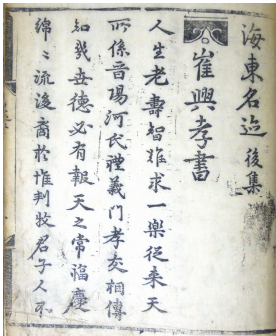 海東名迹 後集
崔興孝書
人生老壽智難求一樂從來天
所係晋陽河氏禮義門孝友相傳
知幾世德必有報天之常福慶
綿〻流後裔於惟判牧君子人不